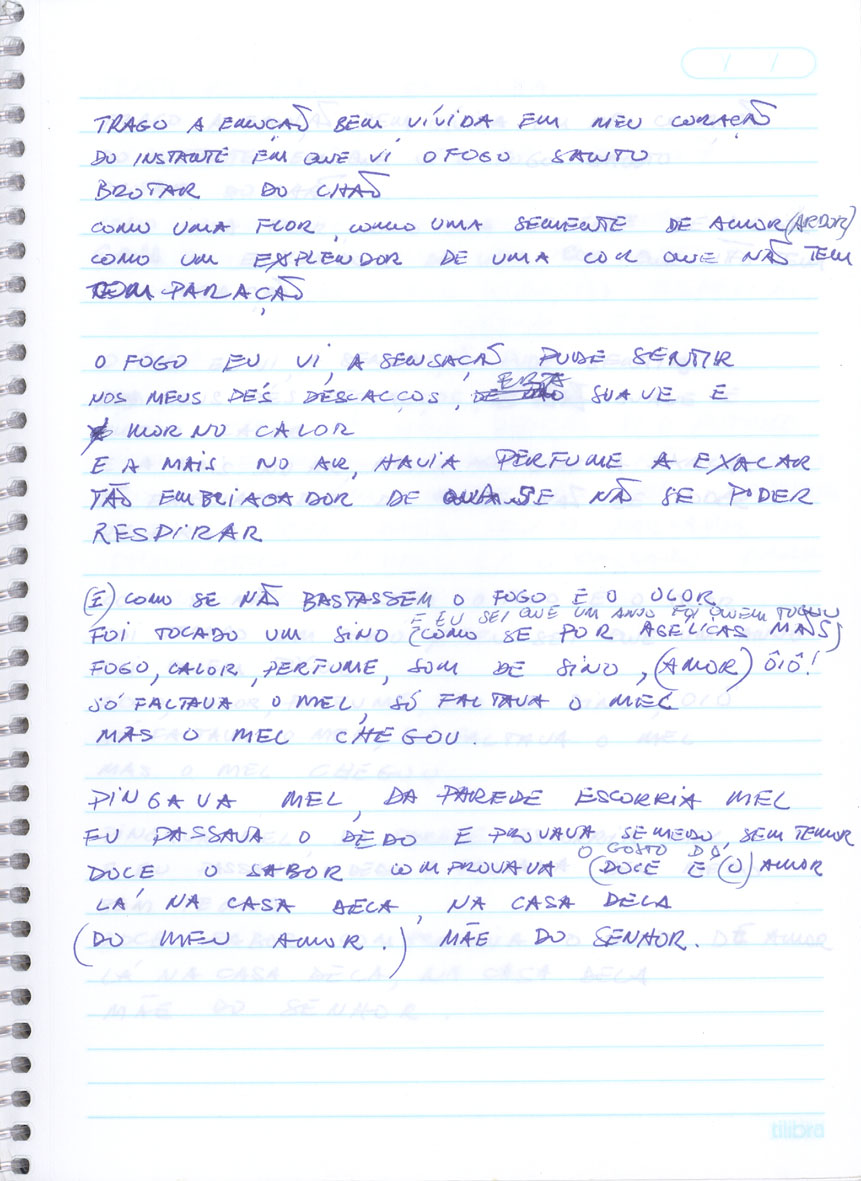 TRAGO A EMOÇÃO BEM VÍVIDA EM MEU CORAÇÃO
DO INSTANTE EM QUE VI O FOGO SANTO
BROTAR DO CHÃO
COMO UMA FLOR, COMO UMA SEMENTE DE AMOR (ARDOR)
COMO UM EXPLENDOR DE UMA COR QUE NÃO TEM
COMPARAÇÃO
O FOGO EU VI, A SENSAÇÃO PUDE SENTIR
NOS MEUS PÉS DESCALÇOS, ERA SUAVE E
MORNO CALOR
E A MAIS NO AR, HAVIA PERFUME A EXALAR
TÃO EMBRIAGADOR DE QUASE NÃO SE PODER
RESPIRAR
(E) COMO SE NÃO BASTASSEM O FOGO E O OLOR
E EU SEI QUE UM ANJO FOI QUEM TOCOU
FOI TOCADO UM SINO (COMO SE POR AGÉLICAS MÃOS)
FOGO, CALOR, PERFUME, SOM DE SINO, (AMOR) ÔIÔ!
SÓ FALTAVA O MEL, SÓ FALTAVA O MEL
MAS O MEL CHEGOU.
PINGAVA MEL, DA PAREDE ESCORRIA MEL
EU PASSAVA O DEDO E PROVAVA SEMEDO, SEM TEMOR
O GOSTO DO
DOCE O SABOR COMPROVAVA (DOCE É (O) AMOR
LÁ NA CASA DELA, NA CASA DELA
(DO MEU AMOR.) MÃE DO SENHOR.
tilibra